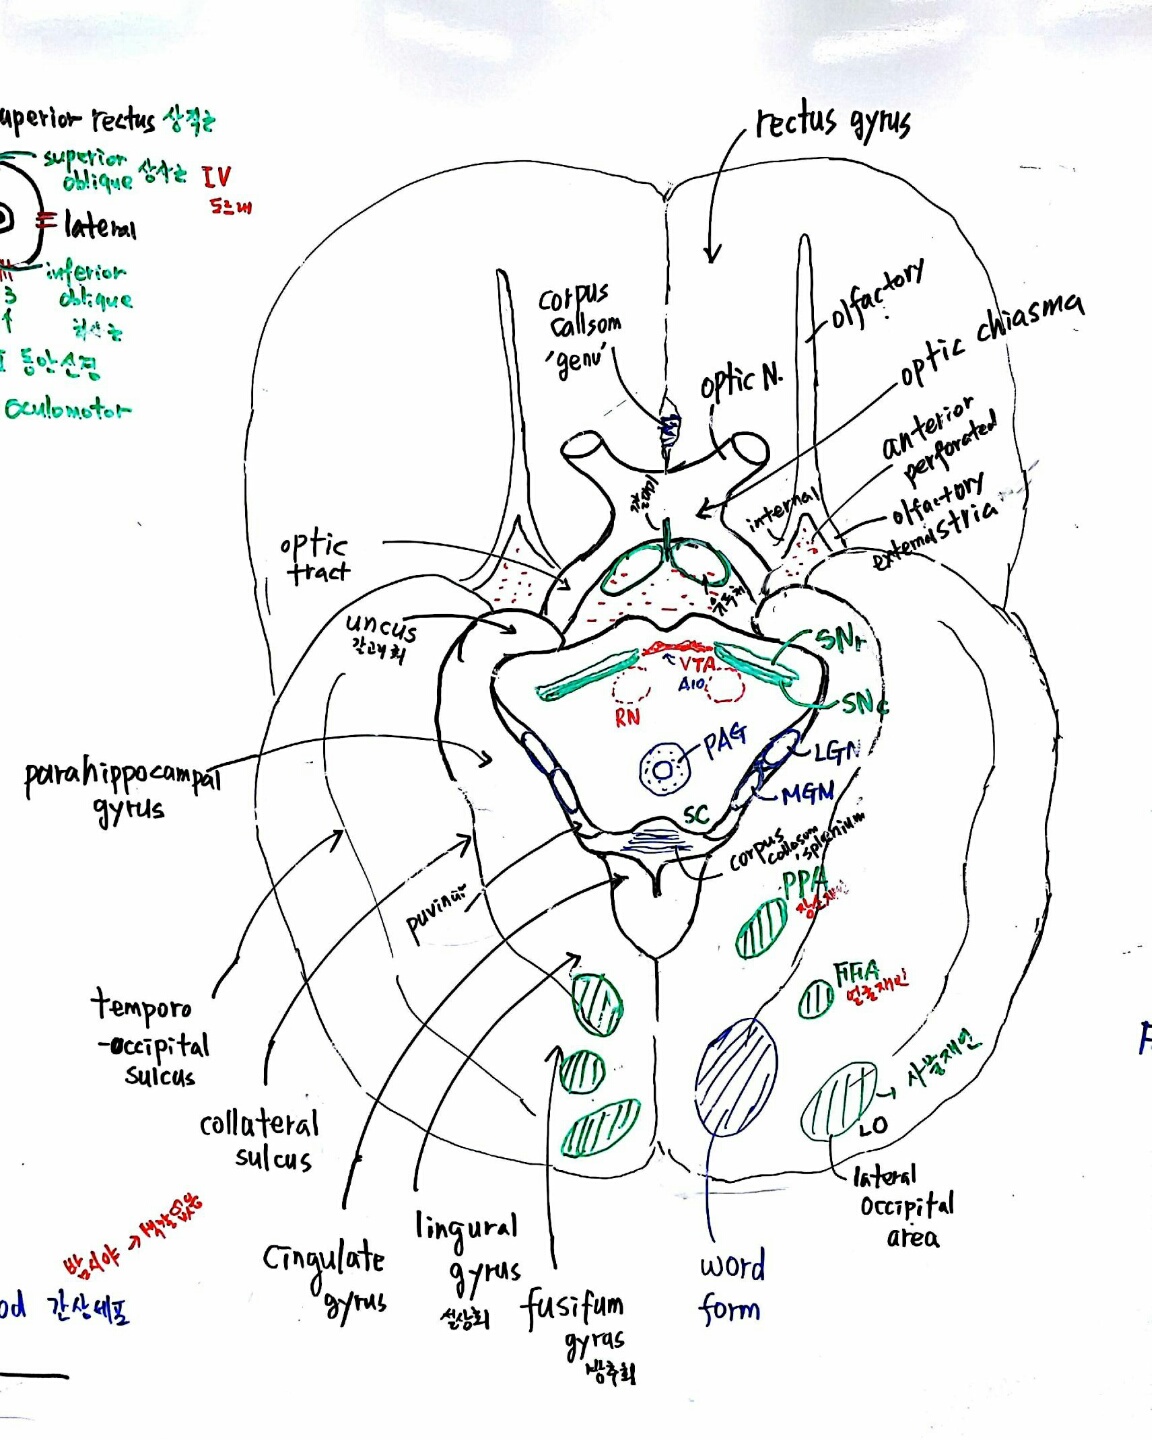 uperior rectus 상직근
superior
oblique 상사근 IV
도르래
lateral
inferior
oblique
하사근
3
동안신경
oculomotor
rectus gyrus
corpus
callsom
'genu'
olfactory
optic chiasma
optic N.
anterior
perforated
internal
olfactory
external stria
optic
tract
uncus
갈고리회
유두체
SNr
VTA
A10
SNc
RN
PAG
LGN
MGM
SC
parahippocampal
gyrus
corpus
collosum
'splenium
puvinar
PPA
장소재인
FFA
얼굴재인
temporo
-occipital
sulcus
사물재인
LO
collateral
sulcus
lateral
occipital
area
cingulate
gyrus
lingural
gyrus
설상회
fusifum
gyrus
방추회
word
form
od 간상세포